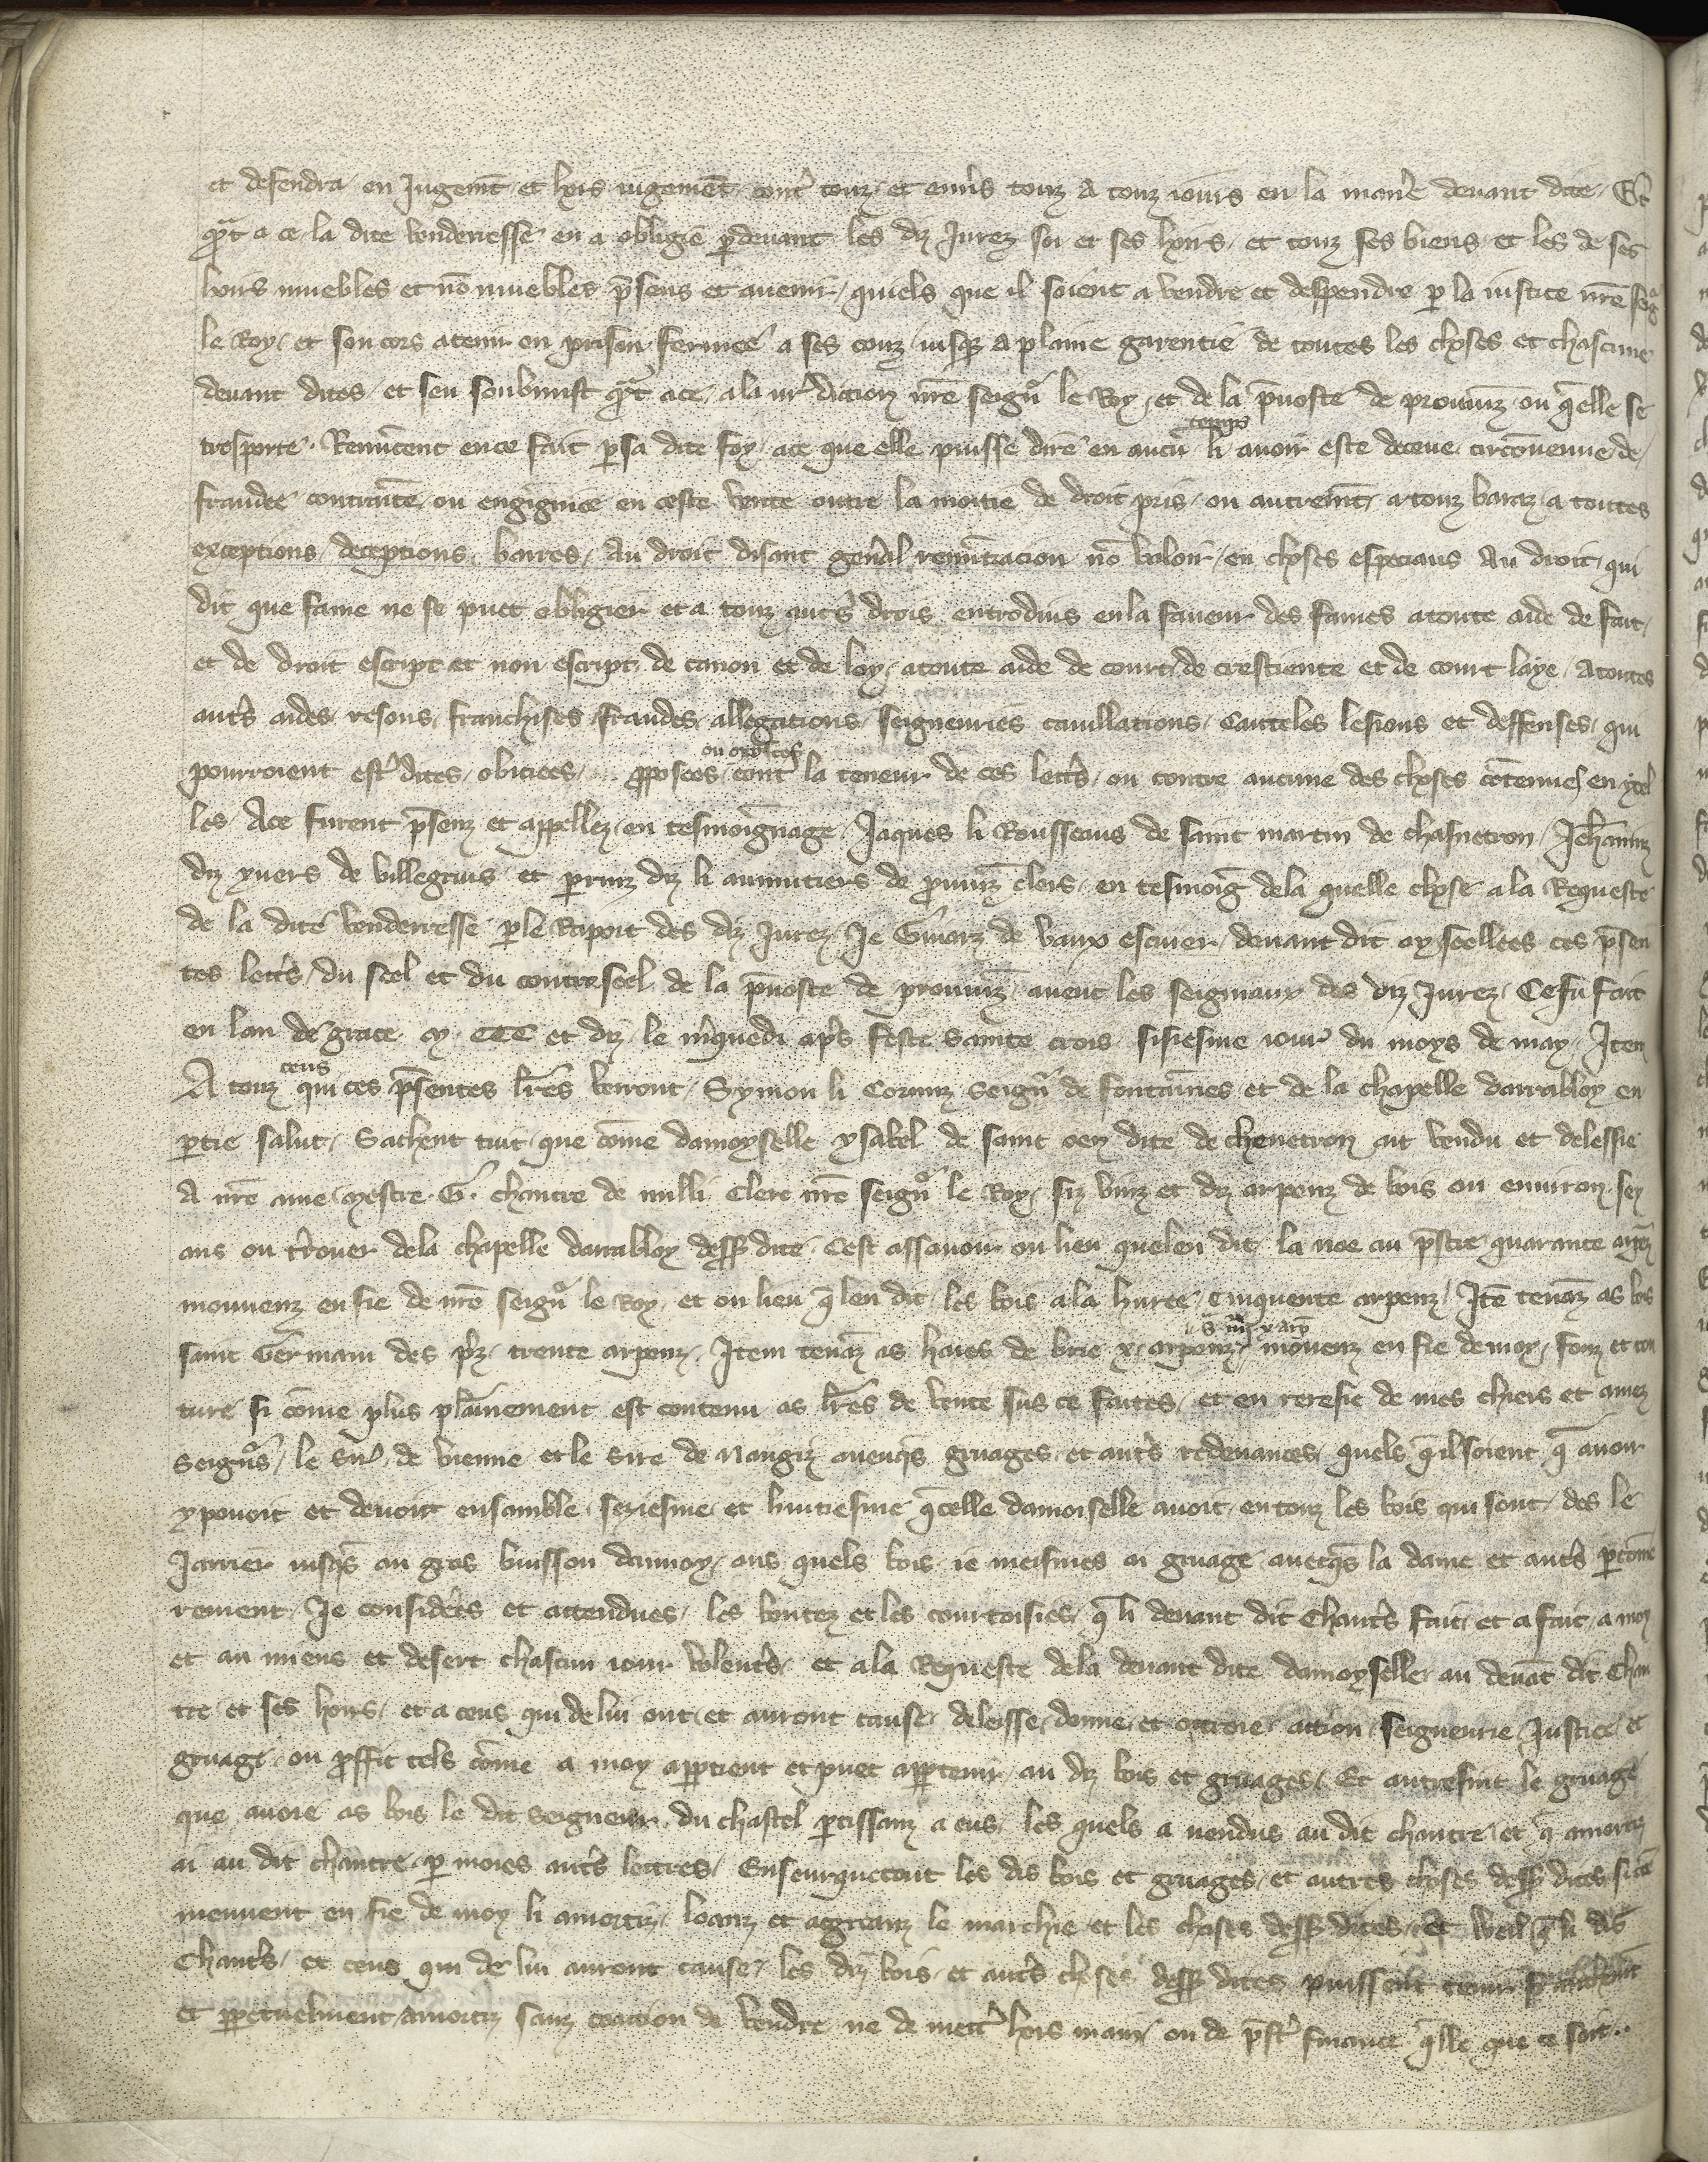 et defendra en Jugemt et hors iugement contr touz et enũs touz a touz iours en la maniere deuant dite Et
qt a ce la dite venderresse en a obligie pdeuant les diz Jurez soi et ses hoirs et touz ses biens et les de ses
hoirs muebles et nõ muebles psenz et auenir quiels que il soient a vendre et despendre p la iustice nre seigr
le Roy et son cors a tenir en prison fermee a ses couz iusqz a plaine garentie de toutes les choses et chascune
deuant dites et seu soubmist qt ace ala iurdiction nre seignr le Roy et de la puoste de prouuinz ou qlle se
trãsporte Renũcent ence fait psa dite foy ace que elle puisse dire en aucũ temps li auoir este deceue circõuenue de
fraudee contrainte ou engigniee en ceste vente outre la moitie de droit pris ou autremt a touz baraz a toutes
exceptions deceptions barres Au droit disant gen̄al renũtiacion nõ valoir en choses especiaus Au droit qui
dit que fame ne se puet obligier et a touz autˢ drois entroduis enla faueur des fames a toute aide de fait
et de droit escript et non escript de canon et de loy atoute aide de court de crestiente et de court laye Atoutes
autˢ aides resons franchises fraudes allegations seigneuries cauillations Cauteles lesions et deffenses qui
pourroient estr dites obiciees pposees ou opposees contr la teneur de ces lettˢ ou contre aucune des choses cõtenues en ycel
les Ace furent psenz et appellez en tesmoignage Jaques li Rousseaus de saint martin de chasnetron Jehannin
diz yuers de villegruis et perrinz diz li aumutiers de prouuiz clers en tesmoig dela quelle chose ala Requeste
de la dite venderresse ple Raport des diz Jurez Je Guiarz de vaux escuier deuant dit ay seellees ces psen
tes lettˢ du seel et du contreseel de la puoste de prouuinz auec les seigniaux des diz Jurez Ce fu fait
en lan de grace M CCC et diz le mˢquedi apˢ feste sainte crois sisiesme iour du moys de may Item
A touz ceus qui ces psentes lres verront Symon li Cornuz Seignr de fontaines et de la chapelle darrabloy en
ptie salut Sachent tuit que cõme damoyselle ysabel de saint oen dite de chenetron ait vendu et delessie
A nre ame Mestre G. chantre de milli clerc nre seignr le Roy siz vinz et diz arpenz de bois ou enuiron sey
ans ou trouer dela chapelle darrabloy dessus dite Cest assauoir ou lieu quelen dit la noe au pstre quarante arpz
mouuenz en fie de nre seignr le Roy et ou lieu q len dit les bois ala hurte cinquente arpenz Jtẽ tenãz as bois
saint Germain des prz trente arpenz Item tenãz as haies de brie x arpenz mouenz en fie demoy fonz et con
ture si cõme plus plainement est contenu as lres de vente sus ce faites et en rerefie de mes chiers et amez
Seignrs le Sire de vienne et le Sire de Nangiz auenqˢ gruages et autˢ redeuances quels qilsoient q auoir
y pouoit et deuoit ensamble seziesme et huitiesme qcelle damoiselle auoit en touz les bois qui sont des le
Jarrier iusqˢ au gros buisson dannoy aus quels bois ie meismes ai gruage auecqˢ la dame et autˢ pcõme
rement Je considerˢ et attendues les bontez et les courtoisies q li deuant dit Chantˢ fait et a fait a moy
et au miens et desert chascun iour volentˢ et a la Requeste dela deuant dite damoyselle au deuãt dit chan
tre et ses hoirs et a ceus qui de lui ont et auront cause delesse donne et ottroie action seigneurie Justice et
gruage ou pffit tels cõme a moy apptient et puet apptenir au diz bois et gruages Et autresint le gruage
que auoie as bois le dit Seigneur du chastel ptissanz a eus les quels a uendus au dit chantre et q amorti
ai au dit chantre p moies autˢ lettres Enseurquetout les dis bois et gruages et autres choses dessus dites sicõ
meuuent en fie de moy li amortiz loanz et aggreanz le marchie et les choses dessus dites Et weil q li dis
Chantˢ et ceus qui de lui auront cause les diz bois et autˢ choses dessus dites puissent tenir
et ppetuelment amortiz sanz coaction de vendre ne de mettr hors main ou de pstr finance qlle que ce soit